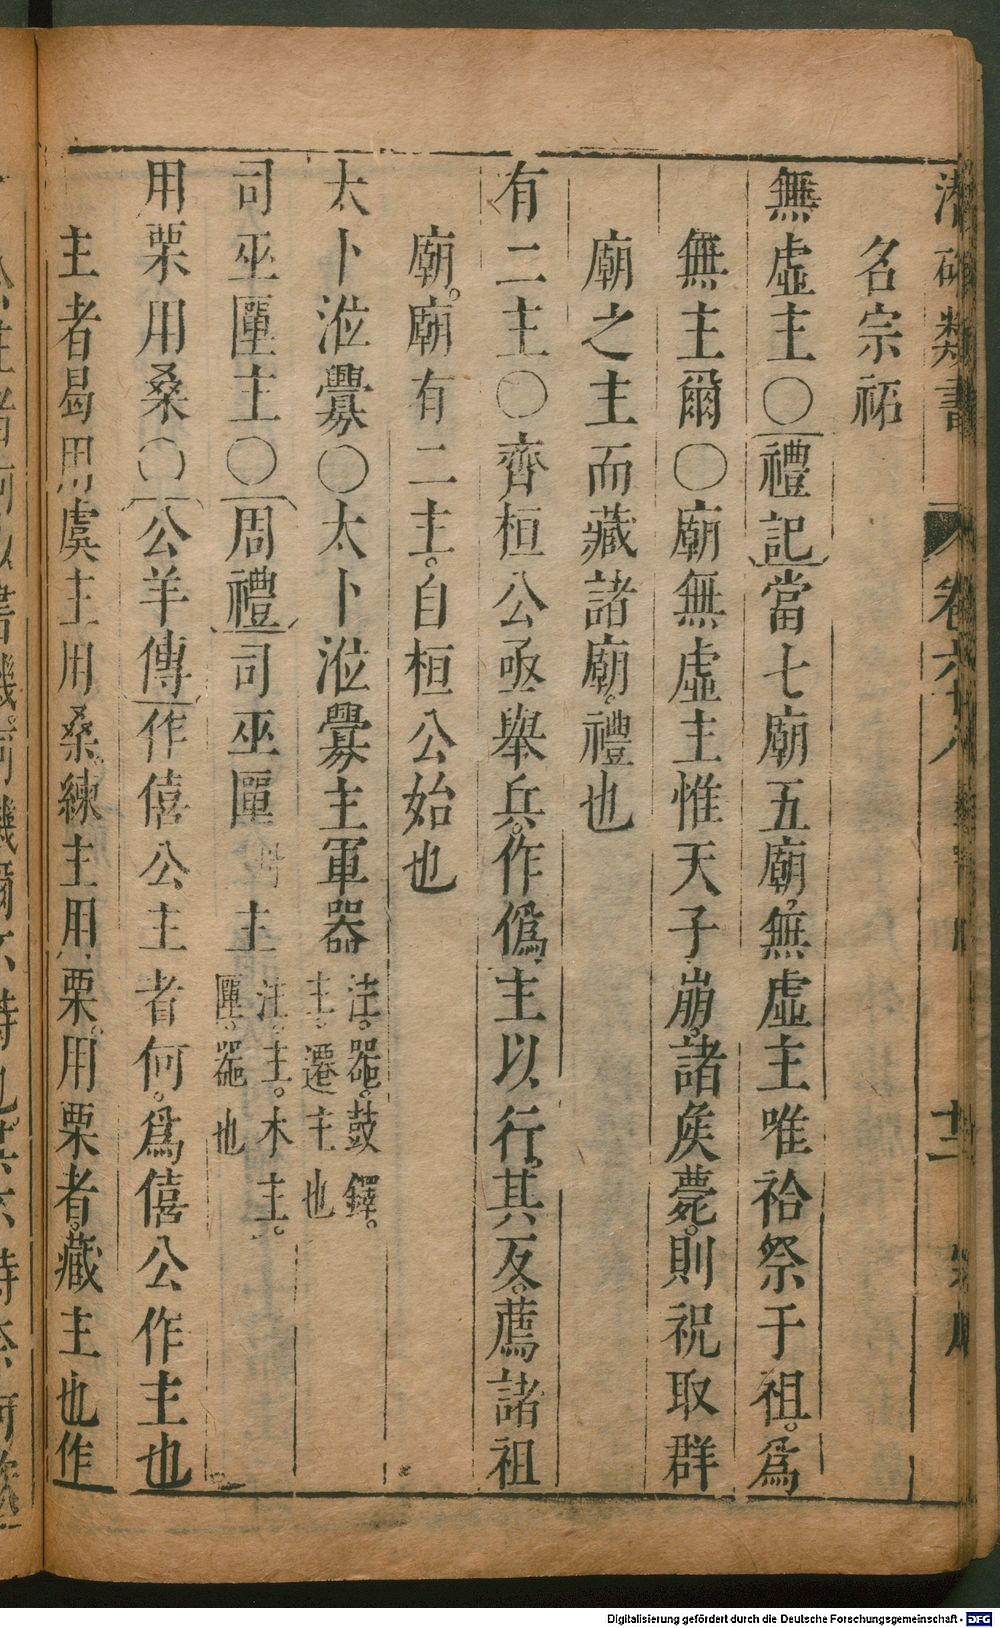 潛確類書 卷六十八 廿二
名宗祏
無虛主〇禮記當七廟五廟無虛主唯祫祭于祖。爲
無主爾〇廟無虛主惟天子崩。諸矦薨。則祝取群
廟之主而藏諸廟。禮也
有二主〇齊桓公亟舉兵。作僞主以行。其反。薦諸祖
廟。廟有二主。自桓公始也
太卜涖釁〇太卜涖釁主軍器注。器。鼓鐸。主。遷主也
司巫匰主〇周禮司巫匰主注。主。木主。匰。器也
用栗用桑〇公羊傳作僖公主者何。爲僖公作主也
主者曷用虞主用桑練主用栗。用栗者。藏主也作
Digitalisierung gefördert durch die Deutsche Forschungsgemeinschaft - DFG